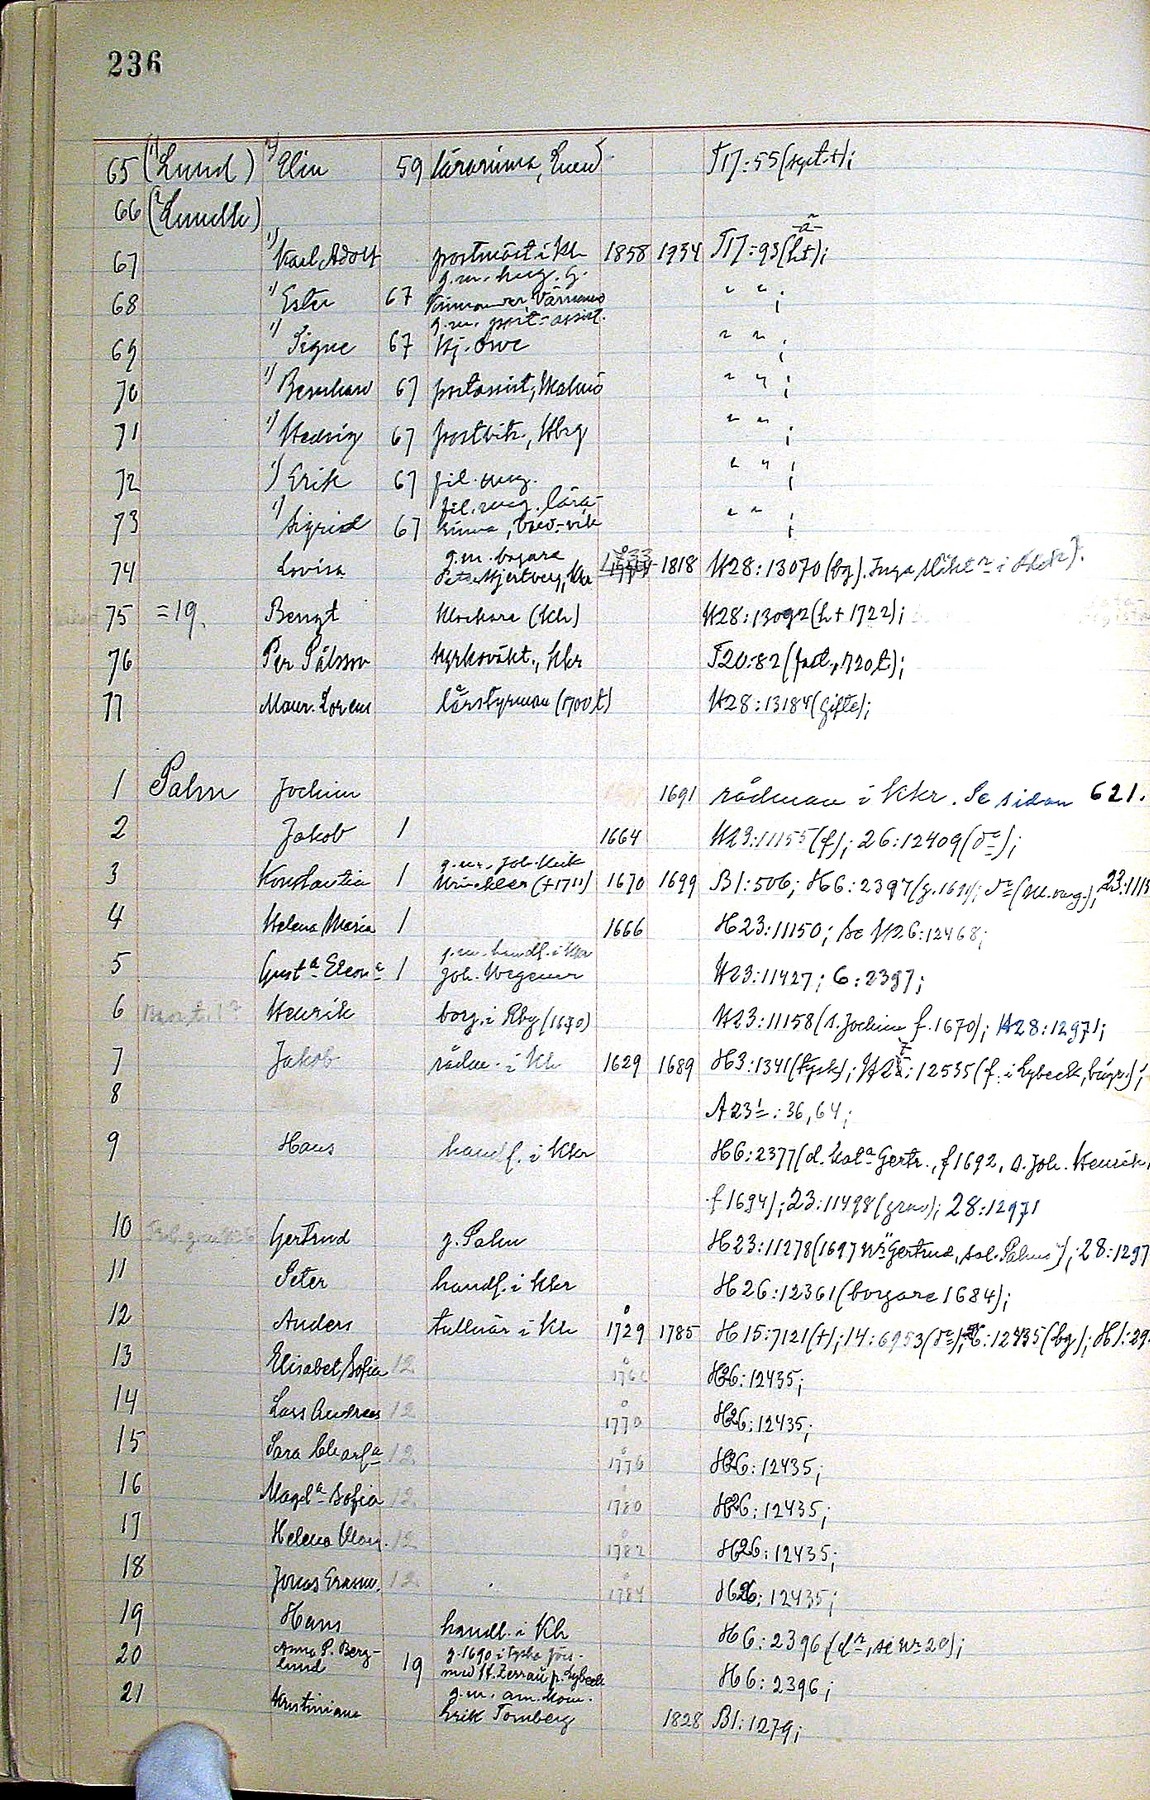 236
65 (1) Lund) 2) Elin 59 lärarinna, Lund T17:55 (syst. +);
66 (2 Lundh)
67 1) Karl Adolf postmäst i Kh 1858 1934 T17:93 (h+);
g.m. kug. G.
68 1) Ester 67 Värnamo " " ;
g.m. post-assist.
69 1) Signe 67 Hj. Orve " " ;
70 1) Bernhard 67 postassist, Malmö " " ;
71 1) Hedvig 67 postbitr., Hbg " " ;
72 1) Erik 67 fil. mag. " " ;
fil. mag. lära-
73 1) Sigrid 67 rinna, " " ;
g.m. borgare
74 Lovisa Peter Hjertberg, Kkr 1818 H28:13070 (bg). Inga
75 =19. Bengt klockare (Kh) H28:13092 (h+1722);
76 Per Pålsson kyrkovakt., Kkr T20:82 (fast., 1720 t);
77 Maur. Lorens lärstyrman (1700 t) H28:13184 (gifte);
1 Palm Jochim 1691 rådman i Kkr. Se sidan 621.
2 Jakob 1 1664 H23:11155 (f); 26:12409 (dº);
g.m. Joh. Henk
3 Konstantia 1 (+1711) 1670 1699 B1:506; H6:2397
4 Helena Maria 1 1666 H23:11150; se H26:12468;
g.m. handl. i Kkr
5 Gustª Eleonª 1 Joh. Wegener H23:11427; 6:2397;
6 Henrik borg. i Rby (1670) H23:11158 (s. Jochim f. 1670); H28:12971;
7 Jakob rådm. i Kh 1629 1689 H3:1341 (tysk); 12535 (f. i Lybeck,
8 A23:36,64;
9 Hans handl. i Kkr H6:2377 (d. Katª Gertr., f 1692, s. Joh. Henrik,
f 1694); 23:11498 (grav); 28:12971
10 Gertrud g. Palm H23:11278 (1697 Gertrud, sal. Palms"); 28:1297
11 Peter handl. i Kkr H26:12361 (borgare 1684);
12 Anders tullnär i Kh 1729 1785 H15:7121 (+); 14:6953 (dº); 26:12435 (bg); H1:29
13 Elisabet Sofia 12 H26:12435;
14 Lars Andreas 12 1770 H26:12435;
15 Sara 12 1776 H26:12435;
16 Magdª Sofia 12 1780 H26:12435;
17 Helena Marg. 12 1782 H26:12435;
18 Jonas Erasm. 12 1784 H26:12435;
19 Hans handl. i Kh H6:2396 (dr, se nr 20);
20 Anna P. Berg- g. 1690 i tyska förs.
lund 19 med H. Zerrau p. Lybeck H6:2396;
g.m. am. kom.
21 Kristiniana Erik Tornberg 1828 B1:1279;